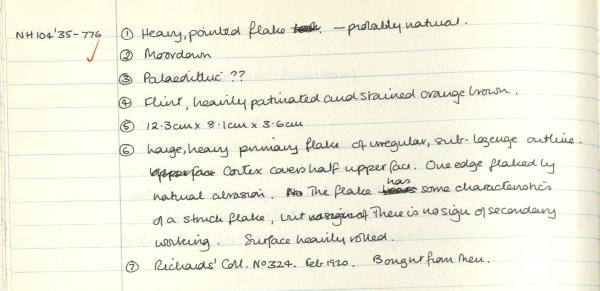 NH104'35-776 ① Heavy, pointed flake tool. — probably natural.
② Moordown
③ Palaeolithic ??
④ Flint, heavily patinated and stained orange brown.
⑤ 12.3cm x 8.1cm x 3.6cm
⑥ Large, heavy primary flake of irregular, sub-lozenge outline.
Upperface Cortex covers half upper face. One edge flaked by
natural abrasion. No The flake bears has some characteristics
of a struck flake, but no sign of There is no sign of secondary
working. Surface heavily rolled.
⑦ Richards' Coll. No 324. Feb 1920. Bought from men.